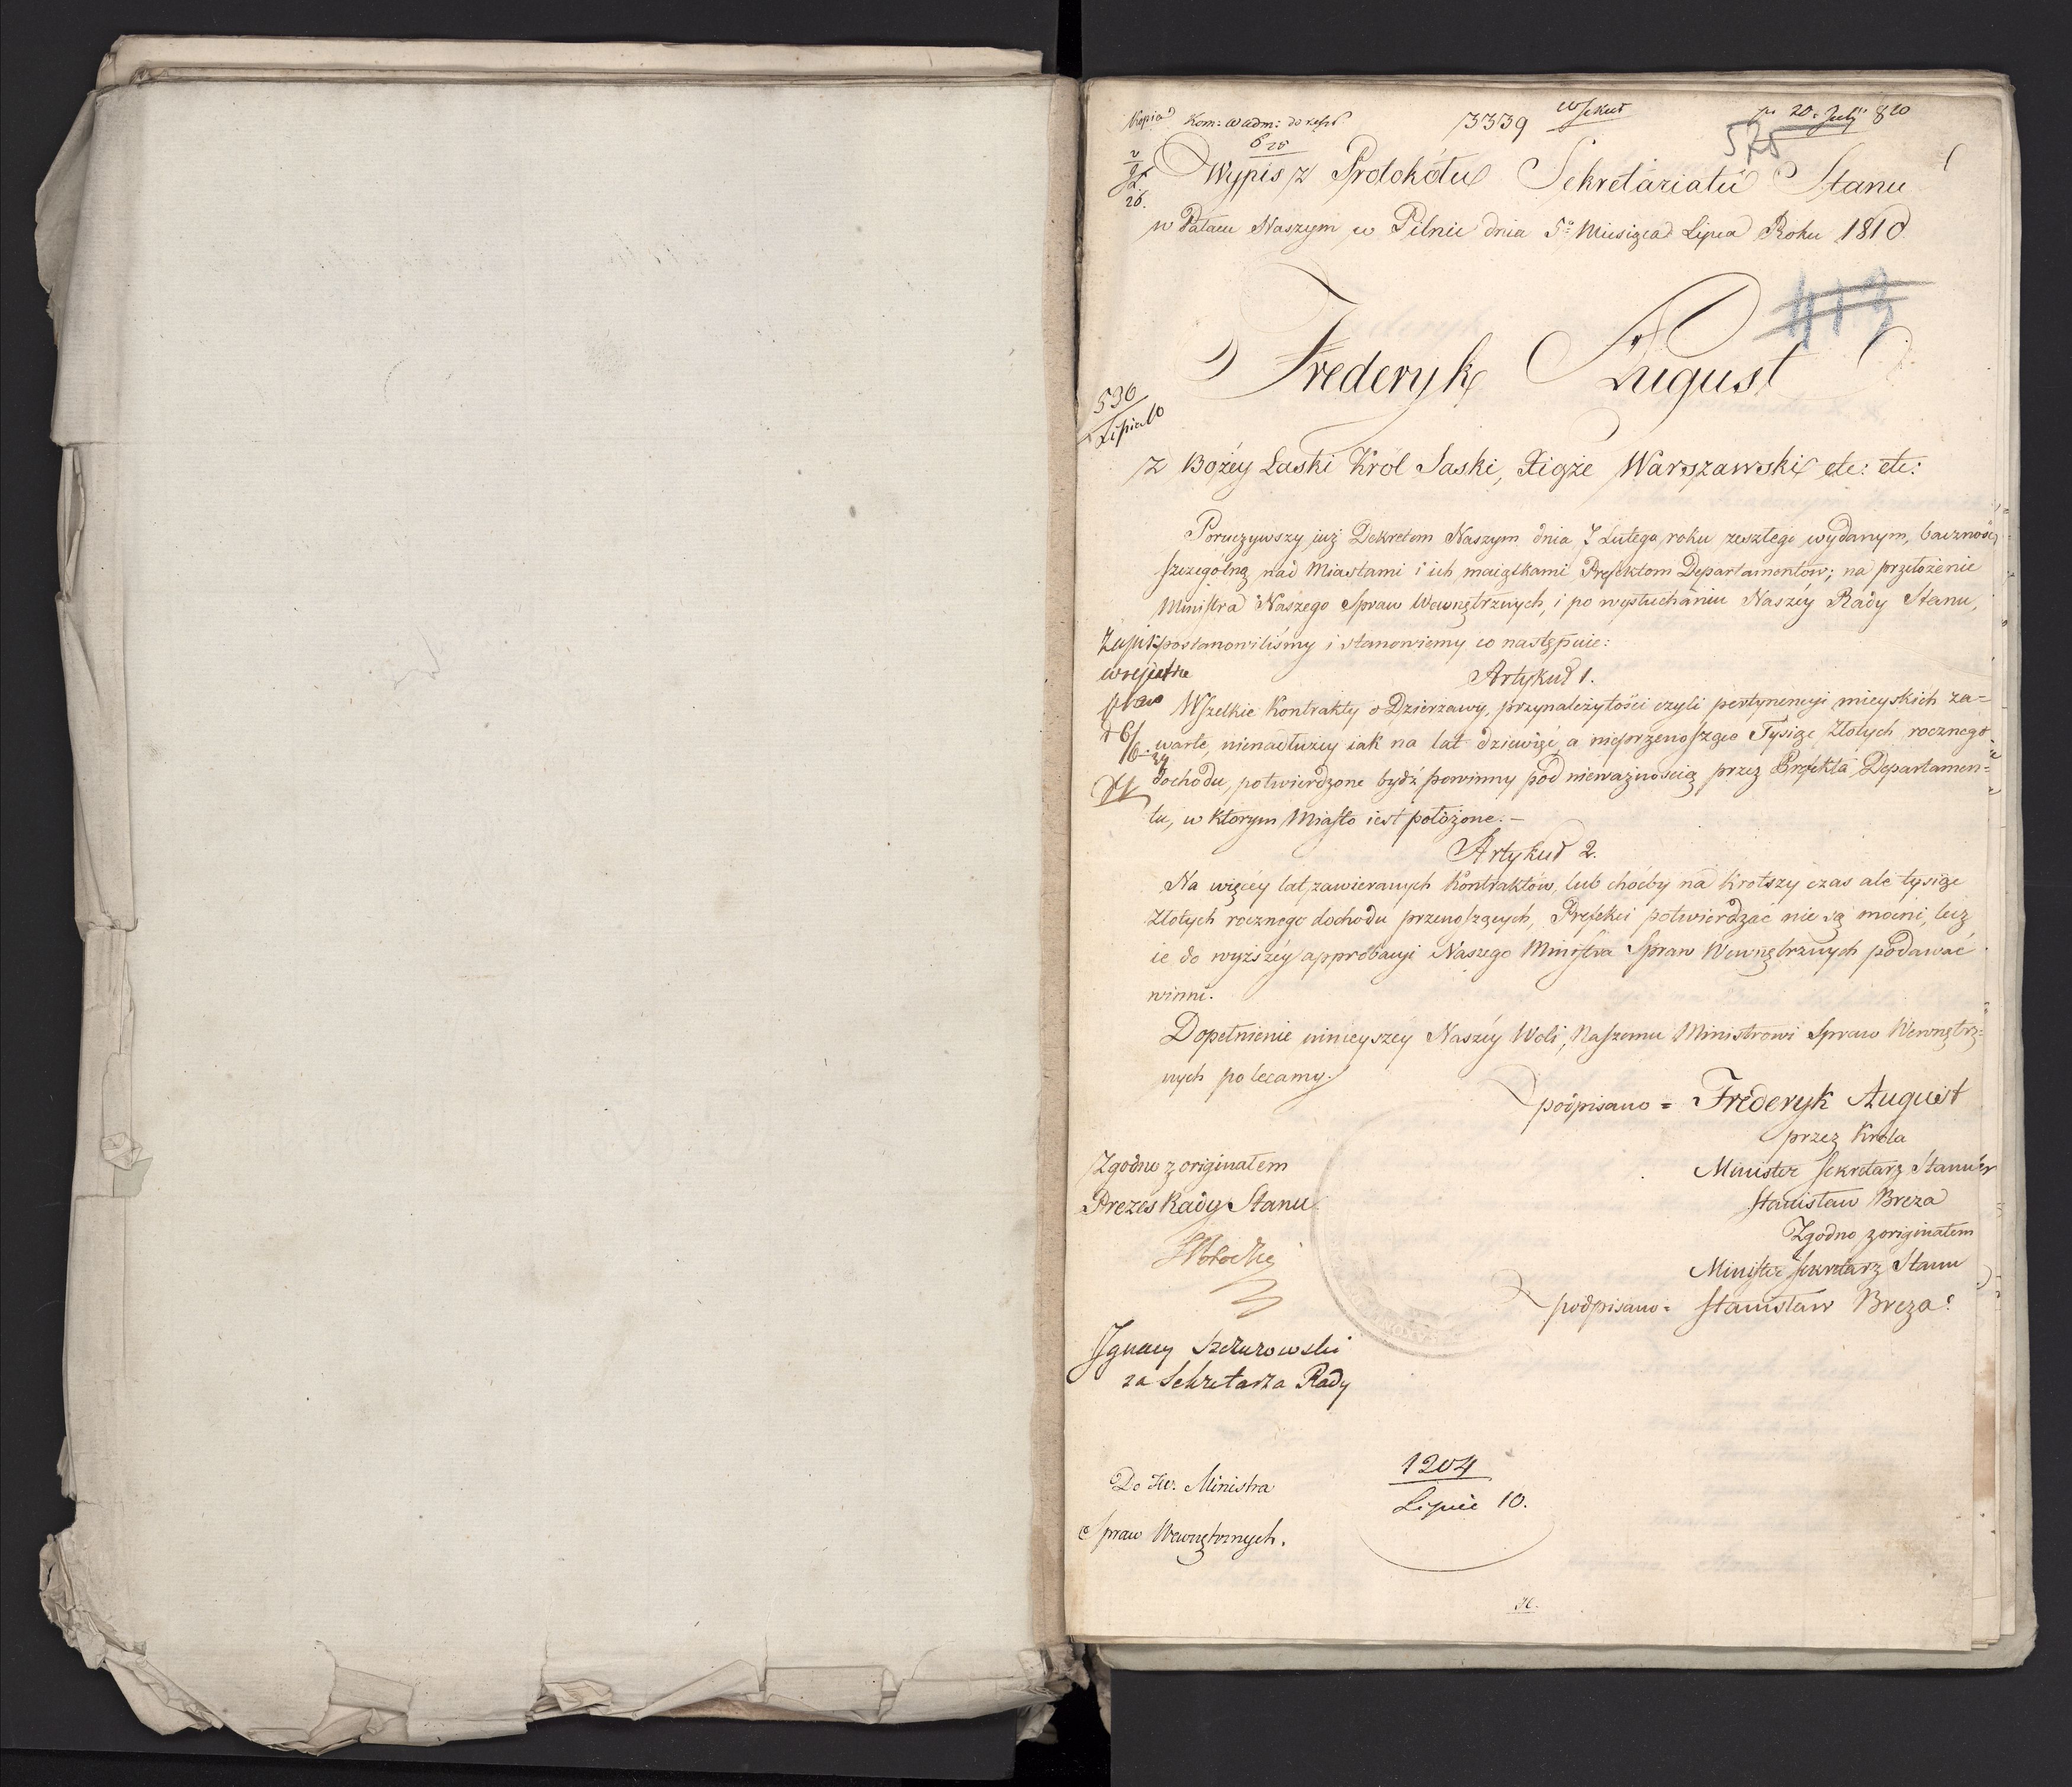 Kopia Kom: w adm:
3339
20. July 810
575
Wypis z Protokółu Sekretariatu Stanu
w Pałacu Naszym w Pilnic dnia 5º Miesiąca Lipca Roku 1810
413
Frederyk August
530
Lipca 10
z Bożéy Laski Król Saski, Xiąże Warszawski etc: etc:
Poruczywszy iuż Dekretem Naszym dnia 7 Lutego roku zeszłego wydanym, baczność
szczególną nad Miastami i ich maiątkami Prefektom Departamentów; na przełożenie
Ministra Naszego Spraw Wewnętrznych, i po wysłuchaniu Naszéy Rady Stanu,
postanowiliśmy i stanowiemy co następuie:
Artykuł 1.
Wszelkie Kontrakty o Dzierżawy, przynależytości czyli pertynencyi mieyskich za=
warte, nienadłużey iak na lat dziewięć, a nieprzenosząca Tysiąc Złotych rocznego
dochodu, potwierdzone bydź powinny pod nieważnością przez Prefekta Departamen=
tu, w którym Miasto iest położone. –
Artykuł 2.
Na więcéy lat zawieranych Kontraktów, lub choćby na krótszy czas ale tysiąc
Złotych rocznego dochodu przenoszących, Prefekci potwierdzać nie są mocni, lecz
ie do wyższéy approbacyi Naszego Ministra Spraw Wewnętrznych podawać
winni.
Dopełnienie ninieyszéy Naszéy Woli, Naszemu Ministrowi Spraw Wewnętrz=
nych polecamy.
podpisano = Frederyk August
przez Króla
Minister Sekretarz Stanu
Stanisław Breza
Zgodno z originałem
Minister Sekretarz Stanu
podpisano = Stanisław Breza
Zgodno z originałem
Prezes Rady Stanu
Ignacy Szczurowski
za Sekretarza Rady
Do JW. Ministra
Spraw Wewnętrznych.
1204
Lipiec 10.